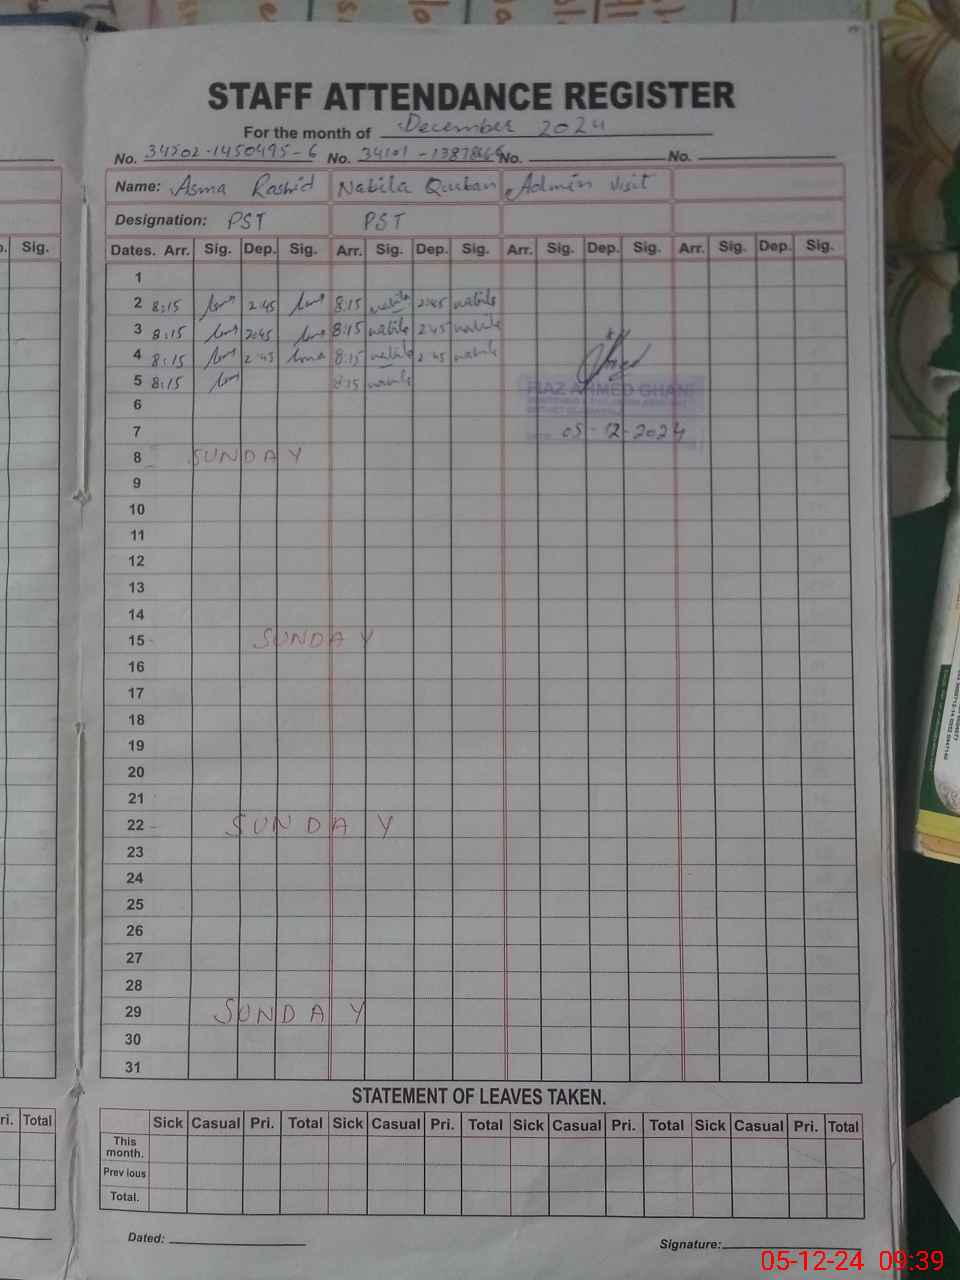 STAFF ATTENDANCE REGISTER
For the month of December 2024
No. 34202-1450495-6 No. No. No.
Name: Asma Rashid Nabila Qurban Admin visit
Designation: PST PST
Sig. Dates. Arr. Sig. Dep. Sig. Arr. Sig. Dep. Sig. Arr. Sig. Dep. Sig. Arr. Sig. Dep. Sig.
1
2 8:15 2:45 8:15 nabila 2:45 nabila
3 8:15 2:45 8:15 nabila 2:45 nabila
4 8:15 2:45 8:15 nabila 2:45 nabila
5 8:15 8:15 nabila
AHMED GHANI
6
7 05-12-2024
8 SUNDAY
9
10
11
12
13
14
15 SUNDAY
16
17
18
19
20
21
22 SUNDAY
23
24
25
26
27
28
29 SUNDAY
30
31
STATEMENT OF LEAVES TAKEN.
ri. Total Sick Casual Pri. Total Sick Casual Pri. Total Sick Casual Pri. Total Sick Casual Pri. Total
This month.
Prev ious
Total.
Dated: Signature:
05-12-24 09:39